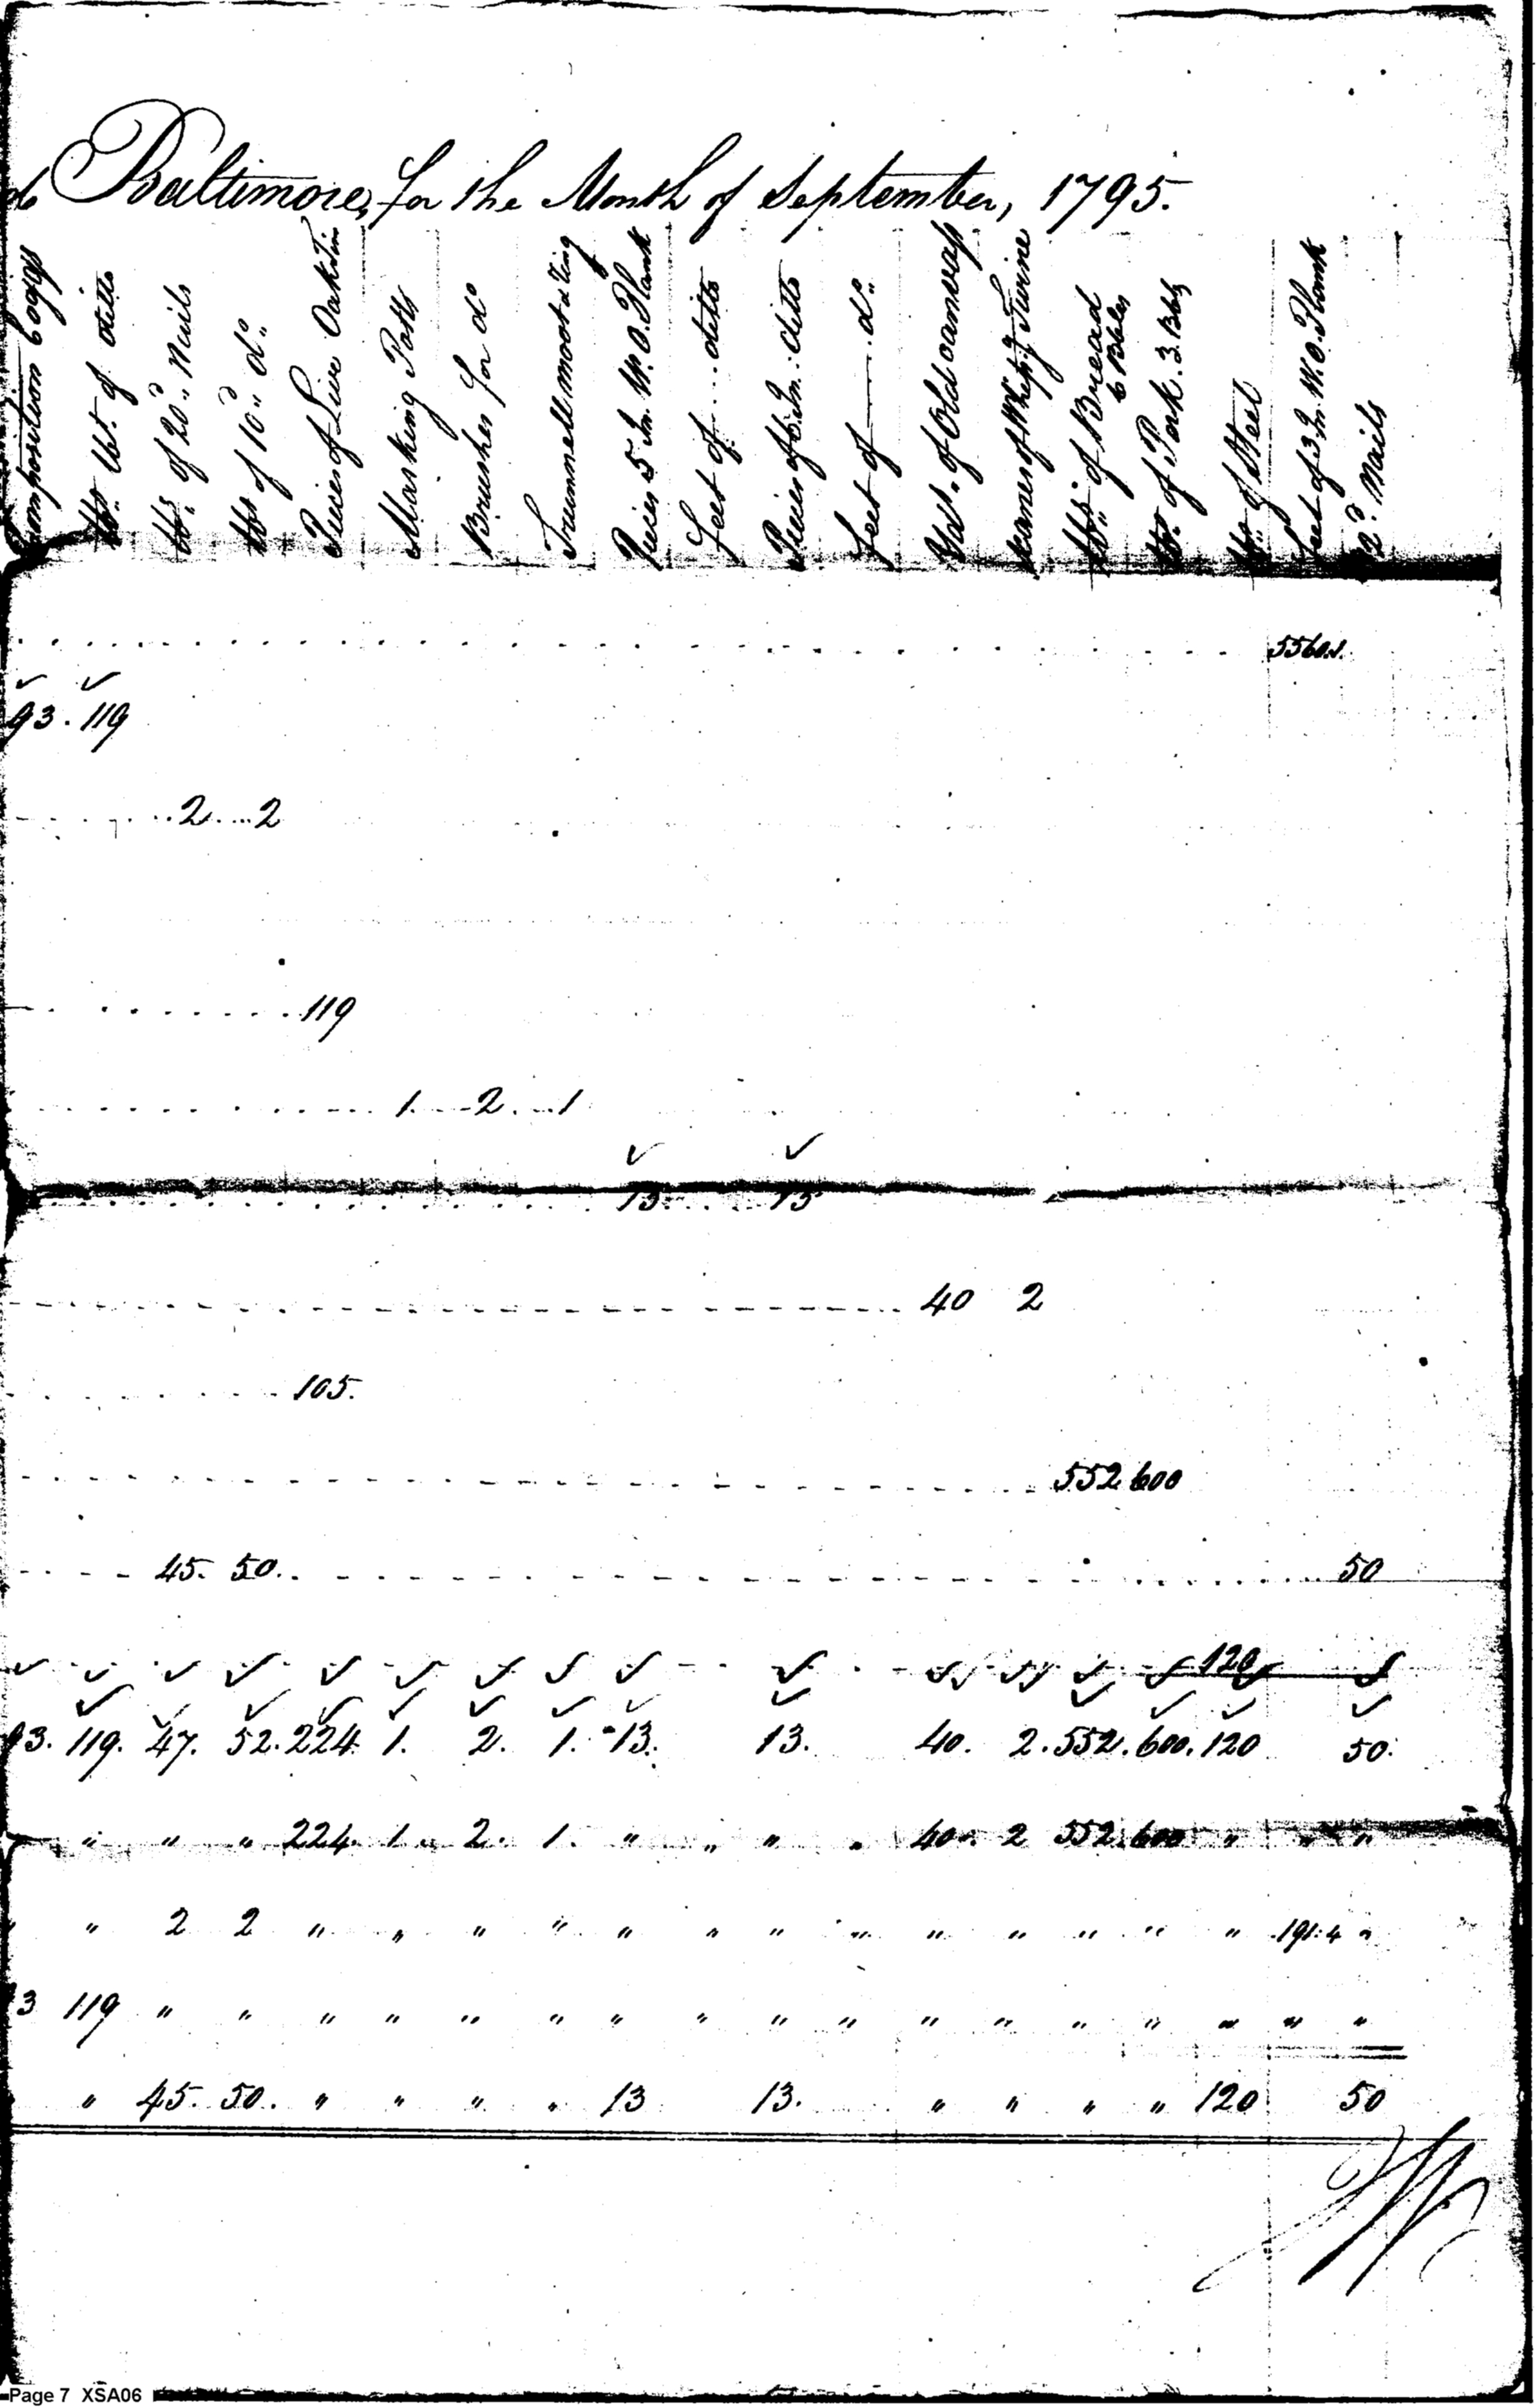 to Baltimore, for the Month of September, 1795.
Composition Coggs
lbs. Wt. of ditto
lbs. of 20d. Nails
lbs of 10d. do.
Pieces of Live Oak Tim
Marking Potts
Brushes for do
Pieces 5 In. W. O. Plank
feet of ... ditto
Pieces of 6 In. ditto
feet of — do.
Yds. of Old canvass
Skanes of Whip.g Twine
lbs. of Bread 6 Bbls
lb. of Pork. 3. Bbls
lb. of Steel
feet of 3 In. W. O. Plank
12d. Nails
5560.1.
93. 119
2 2
119
1 2 1
13. 13
40 2
105.
552 600
45. 50. 50
120
93. 119. 47. 52. 224. 1. 2. 1. 13. 13. 40. 2. 552. 600. 120 50.
" " " 224. 1 " 2. 1. " " " " 40. 2 552. 600 " " "
" 2 2 " " " " " " " " " " " " " 191:4 "
3 119 " " " " " " " " " " " " " " " " "
" 45. 50. " " " " 13 13. " " " " 120 50
Page 7 XSA06